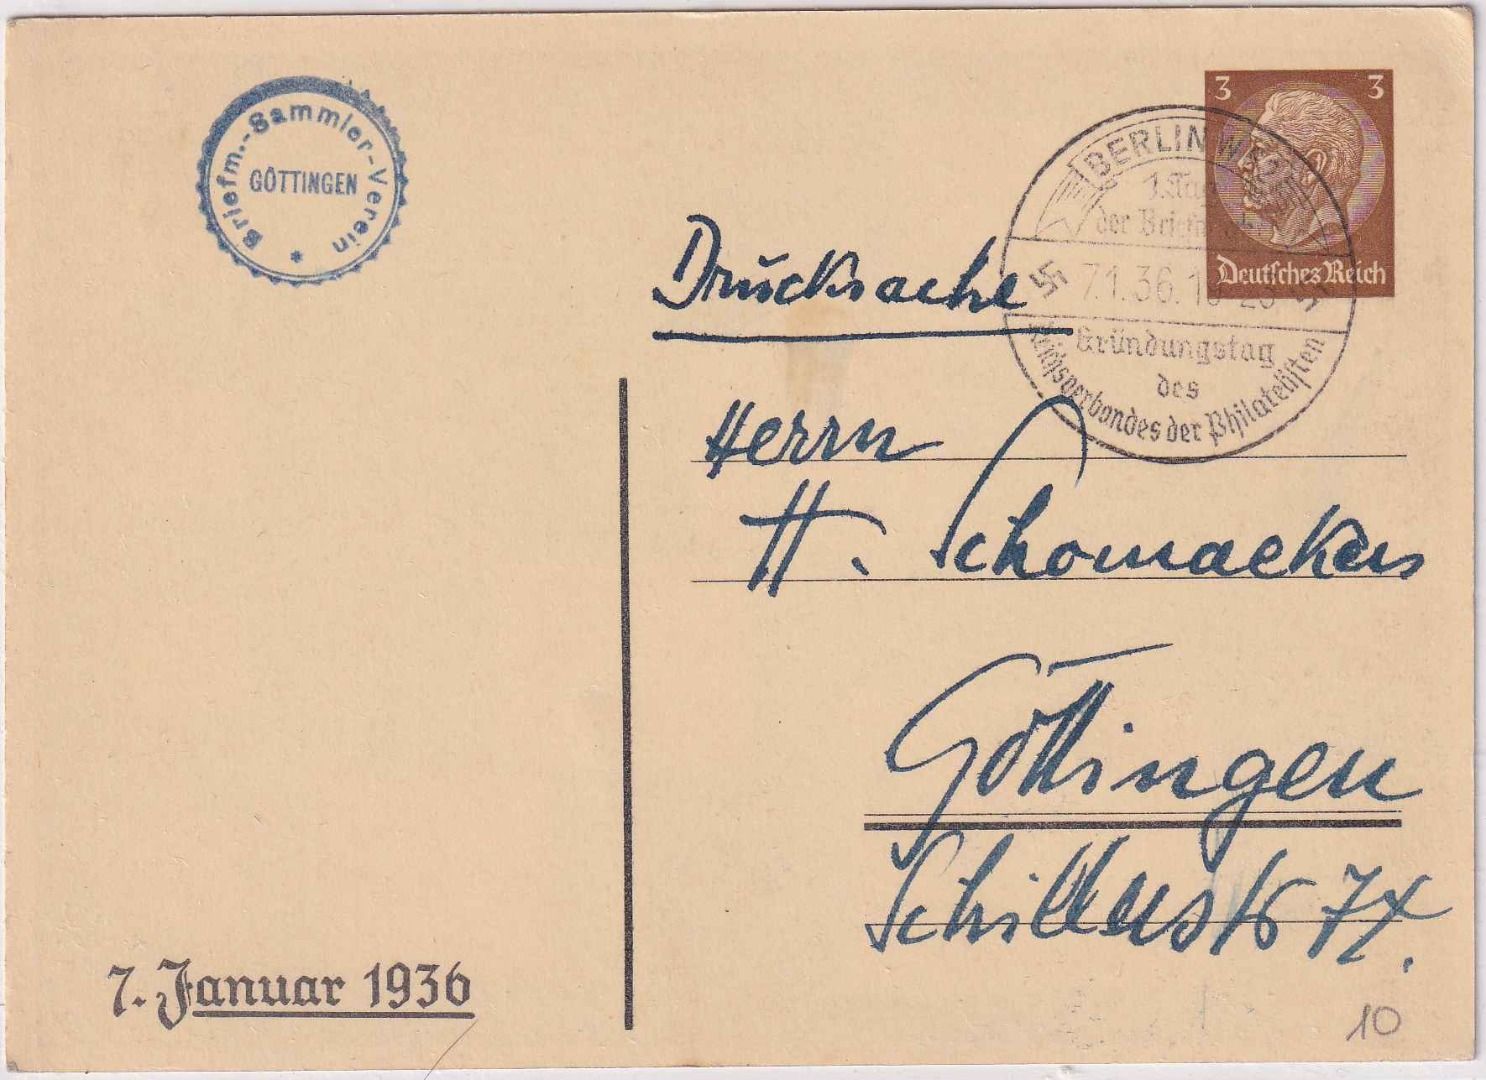 Briefm.-Sammler-Verein
GÖTTINGEN
3 3
Deutsches Reich
BERLIN W
1. Tag
der Briefmarke
7.1.36.
Gründungstag
des
Reichsverbandes der Philatelisten
Drucksache
Herrn
H. Schomackers
Göttingen
Schillerstr 74.
7. Januar 1936
10